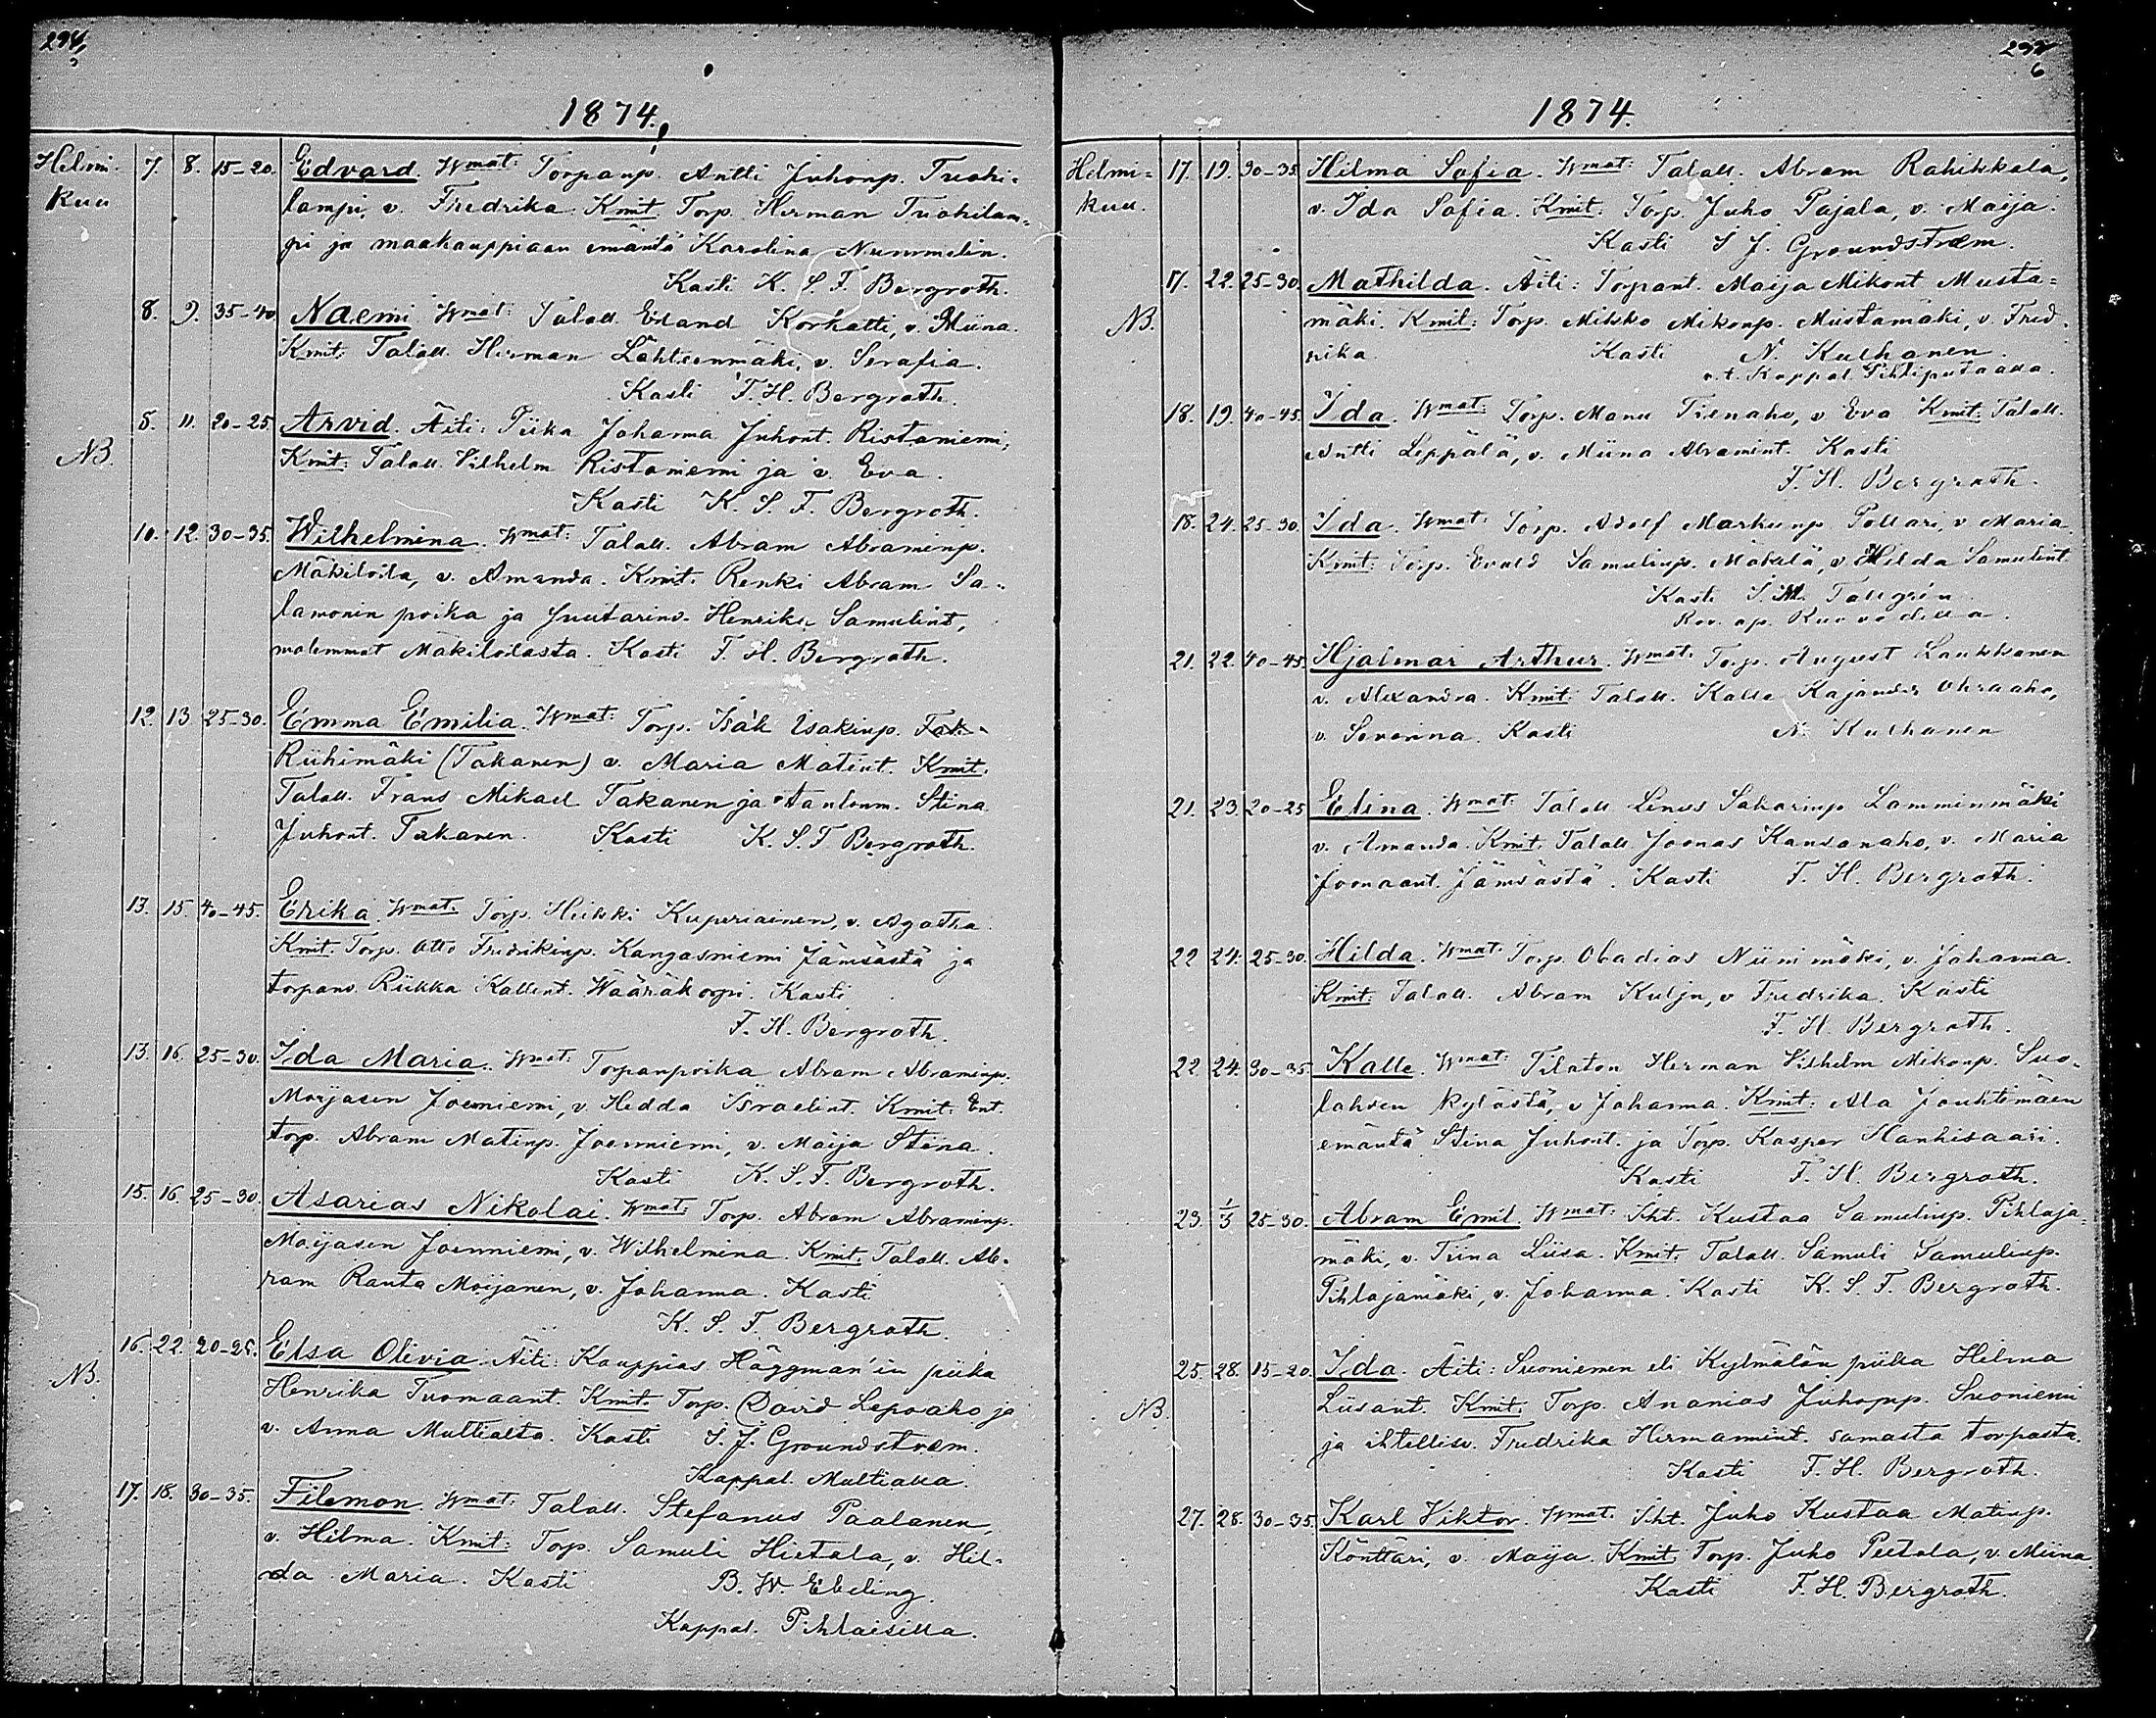 294,
1874.
Helmi-
kuu
7. 8. 15-20. Edvard. Wmat: Torpanp. Antti Juhonp. Tuohi-
lampi, v. Fredrika. Kmit. Torp. Herman Tuohilam-
pi ja maakauppiaan emäntä Karolina Nummelin.
Kasti K. S. F. Bergroth.
8. 9. 35-40 Naemi Wmat: Talall. Erland Korhatti, v. Miina.
Kmit: Talall. Herman Lähteenmäki, v. Serafia.
Kasti F. H. Bergroth.
NB.
8. 11. 20-25 Arvid. Äiti: Piika Johanna Juhont. Ristaniemi,
Kmit: Talall. Vilhelm Ristaniemi ja v. Eva.
Kasti K. S. F. Bergroth.
10. 12. 30-35. Wilhelmina. Wmat: Talall. Abram Abraminp.
Mäkiloila, v. Amanda. Kmit: Renki Abram Sa-
lamonin poika ja Juutarinv. Henrika Samulint,
molemmat Mäkiloilasta. Kasti F. H. Bergroth.
12. 13 25-30. Emma Emilia. Wmat: Torp. Isak Isakinp.
Riihimäki (Takanen) v. Maria Matint. Kmit.
Talall. Frans Mikael Takanen ja Stina
Juhont. Takanen. Kasti K. S. F. Bergroth.
13. 15. 40-45. Erika. Wmat. Torp. Heikki Kuperiainen, v. Agatha.
Kmit. Torp. Otto Fredrikinp. Kangasniemi Jämsästä ja
torpanv. Riikka Kallent. Wääräkorpi. Kasti
F. H. Bergroth.
13. 16. 25-30. Ida Maria. Wmat: Torpanpoika Abram Abraminp.
Moijasen Joenniemi, v. Hedda Israelint. Kmit: Ent.
torp. Abram Matinp. Joenniemi, v. Maija Stina.
Kasti K. S. F. Bergroth.
15. 16. 25-30. Asarias Nikolai. Wmat: Torp. Abram Abraminp.
Moijasen Joenniemi, v. Wilhelmina. Kmit: Talall. Ab-
ram Ranta Moijanen, v. Johanna. Kasti
K. S. F. Bergroth.
NB.
16. 22. 20-25. Elsa Olivia. Äiti: Kauppias Häggman'in piika
Henrika Tuomaant. Kmit: Torp. David Lepoaho ja
v. Anna Multialta. Kasti S. J. Groundstrœm.
Kappal. Multialla.
17. 18. 30-35. Filemon. Wmat: Talall. Stefanus Paalanen,
v. Hilma. Kmit: Torp. Samuli Hietala, v. Hil-
da Maria. Kasti B. W. Ebeling.
Kappal. Pihlaisilla.
6
1874.
Helmi-
kuu.
17. 19. 30-35. Hilma Sofia. Wmat: Talall. Abram Rahikkala,
v. Ida Sofia. Kmit: Torp. Juho Pajala, v. Maija.
Kasti S J. Groundstrœm.
NB.
17. 22. 25-30. Mathilda. Äiti: Torpant. Maija Mikont Musta-
mäki. Kmit: Torp. Mikko Mikonp. Mustamäki, v. Fred-
rika. Kasti N. Kulhanen.
v.t. Kappal. Pihtiputaalla.
18. 19. 40-45. Ida. Wmat: Torp. Manu Tienaho, v Eva Kmit: Talall.
Antti Leppälä, v. Miina Abramint. Kasti
F. H. Bergroth.
18. 24. 25-30. Ida. Wmat: Torp. Adolf Markunp. Pollari, v Maria.
Kmit: Torp. Evald Samulinp. Mäkelä, v Hilda Samulint.
Kasti S. M. Tallgrén
Kov. ap. Ruovedellä.
21. 22. 40-45. Hjalmar Arthur. Wmat. Torp. August Laukkanen
v. Alexandra. Kmit: Talall. Kalle Kajander Ohraaho,
v. Severina. Kasti N. Kulhanen
21. 23. 20-25 Elina. Wmat: Talall Linus Sakarinp Lamminmäki
v. Amanda. Kmit. Talall Joonas Kansanaho, v. Maria
Joonaant. Jämsästä. Kasti F. H. Bergroth.
22 24. 25-30. Hilda. Wmat. Torp. Obadias Niinimäki, v. Johanna.
Kmit: Talall. Abram Kulju, v Fredrika. Kasti
F. H. Bergroth.
22. 24. 30-35 Kalle. Wmat: Tilaton Herman Vilhelm Mikonp. Suo-
lahden kylästä, v Johanna. Kmit: Ala Jouhtimäen
emäntä Stina Juhont. ja Torp. Kasper Hanhisaari.
Kasti F. H. Bergroth.
23. 1/3 25-30. Abram Emil Wmat: Iht. Kustaa Samulinp. Pihlaja-
mäki, v. Tiina Liisa. Kmit. Talall. Samuli Samulinp.
Pihlajamäki, v. Johanna. Kasti K. S. F. Bergroth.
NB.
25. 28. 15-20. Ida. Äiti: Suoniemen eli Kylmälän piika Helma
Liisant. Kmit: Torp. Ananias Juhonp. Suoniemi
ja ihtellisv. Fredrika Hermannint. samasta torpasta.
Kasti F. H. Bergroth.
27. 28. 30-35. Karl Viktor. Wmat. Iht. Juho Kustaa Matinp.
Könttäri, v. Maija. Kmit. Torp. Juho Peetola, v. Miina
Kasti F. H. Bergroth.